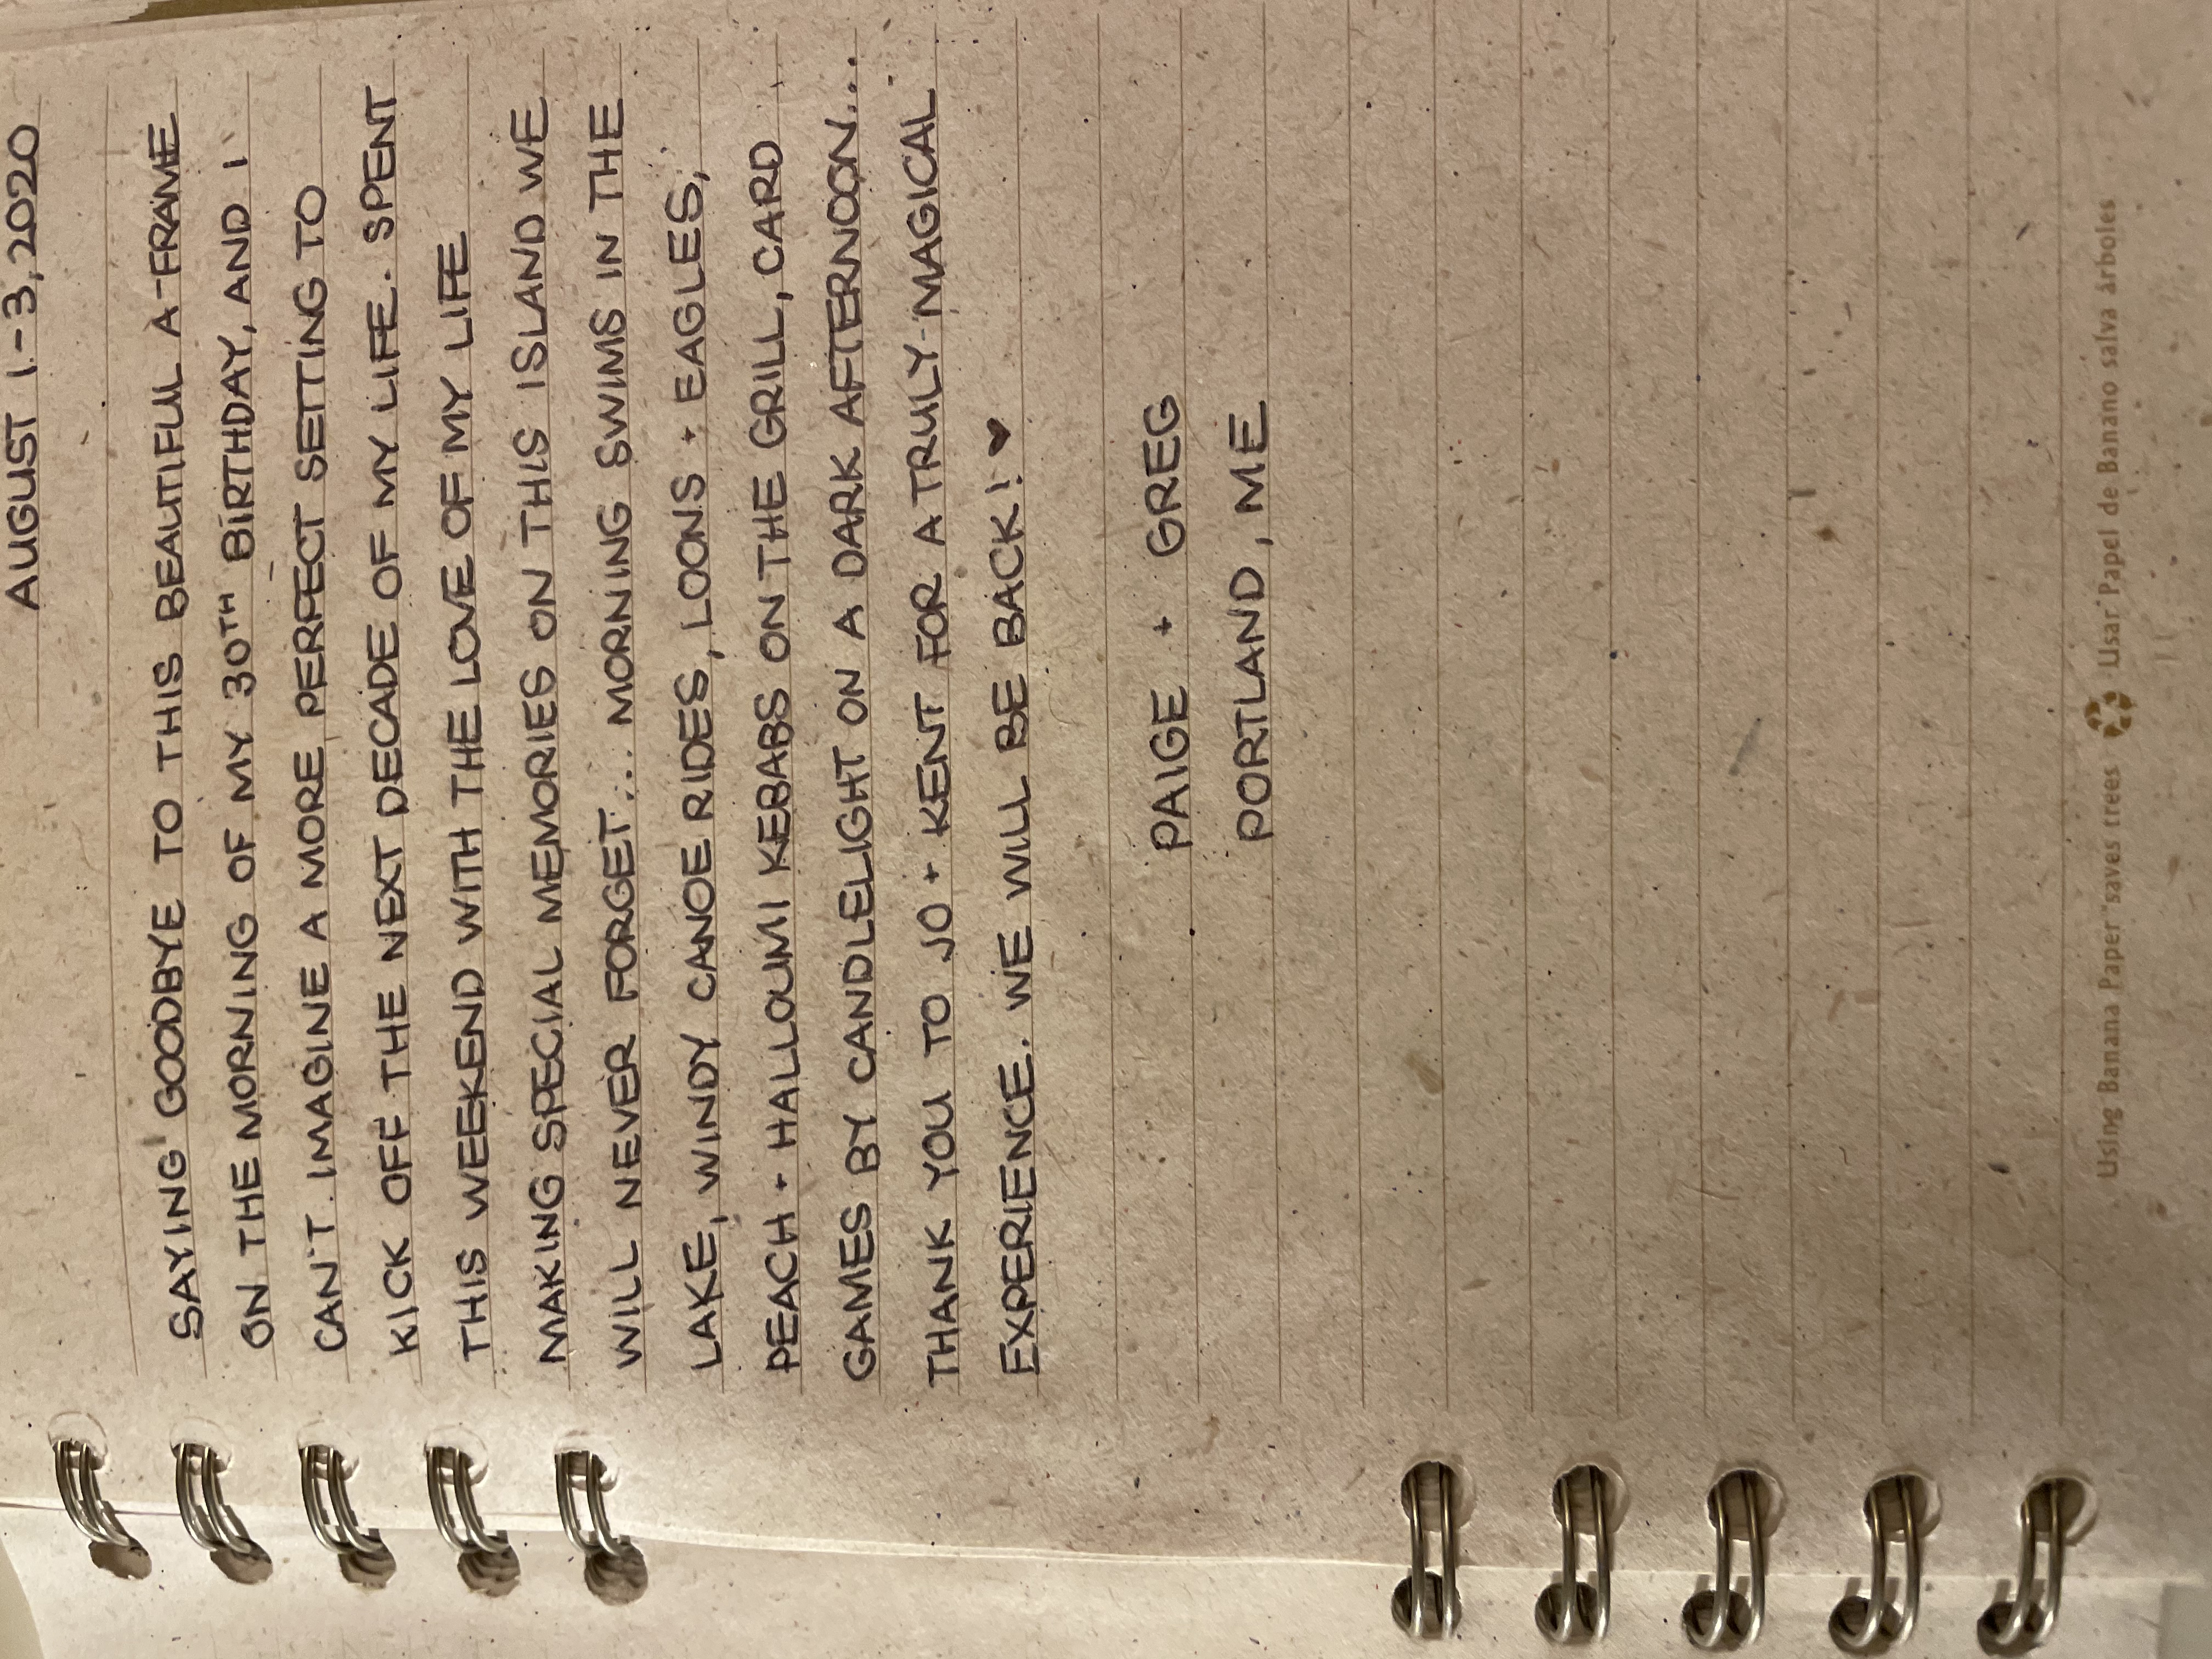 AUGUST 1-3, 2020
SAYING GOODBYE TO THIS BEAUTIFUL A-FRAME
ON THE MORNING OF MY 30TH BIRTHDAY, AND I
CAN'T IMAGINE A MORE PERFECT SETTING TO
KICK OFF THE NEXT DECADE OF MY LIFE. SPENT
THIS WEEKEND WITH THE LOVE OF MY LIFE
MAKING SPECIAL MEMORIES ON THIS ISLAND WE
WILL NEVER FORGET... MORNING SWIMS IN THE
LAKE, WINDY CANOE RIDES, LOONS + EAGLES,
PEACH + HALLOUMI KEBABS ON THE GRILL, CARD
GAMES BY CANDLELIGHT ON A DARK AFTERNOON...
THANK YOU TO JO + KENT FOR A TRULY MAGICAL
EXPERIENCE. WE WILL BE BACK! ♥
PAIGE + GREG
PORTLAND, ME
Using Banana Paper saves trees Usar Papel de Banano salva árboles